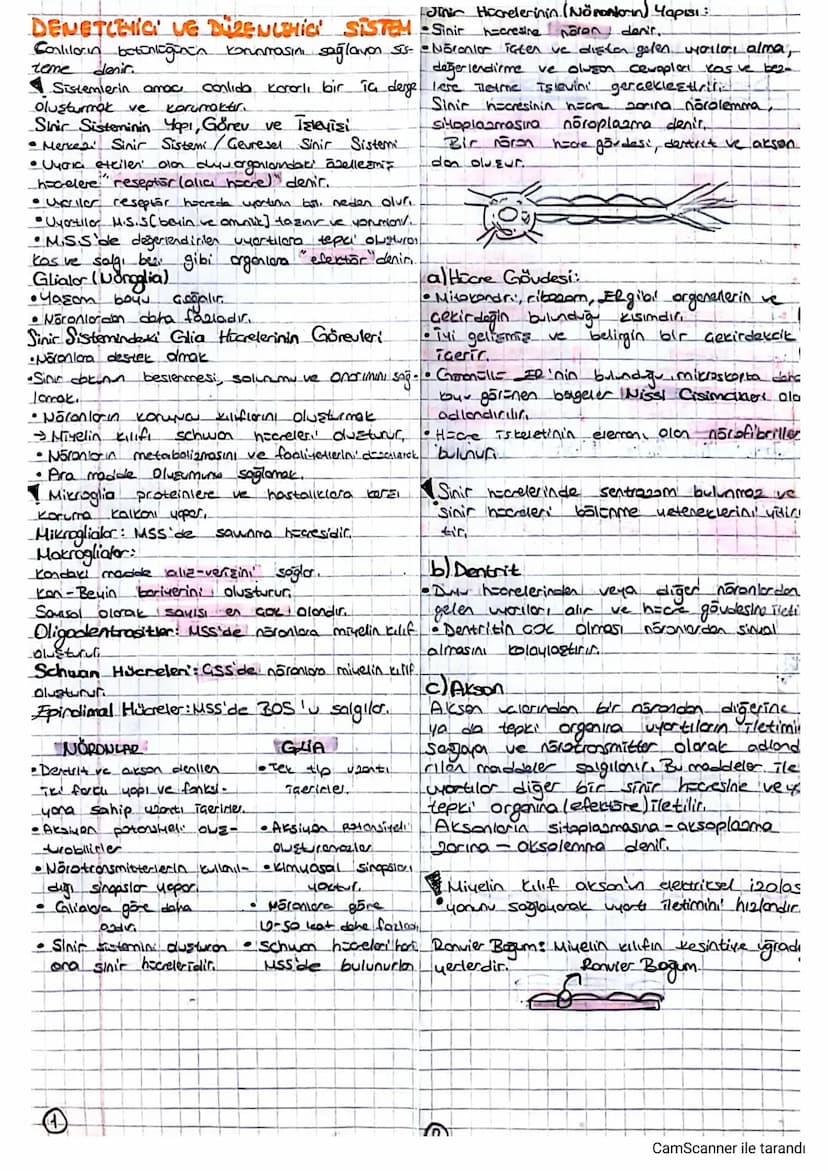 DENETLEYİCİ VE DÜZENLEYİCİ SİSTEM
Canlıların bütünlüğünün korunmasını sağlayan sis-
teme denir.
Sistemlerin amacı canlıda kararlı bir iç denge
oluşturmak ve korumaktır.
Sinir Sisteminin Yapı, Görev ve İşleyişi
• Merkezi Sinir Sistemi / Çevresel Sinir Sistemi
• Uyarıcı etkileri olan duyu organlarındaki özelleşmiş
hücrelere "reseptör (alıcı hücre)" denir.
• Uyarılar reseptör hücrede uyartının neden olur.
• Uyartılar M.S.S (beyin ve omurilik) taşınır ve yorumlanır.
• M.S.S'de değerlendirilen uyartılara tepki oluşturan
kas ve salgı bezi gibi organlara "efektör" denir.
Glialar (Nöroglia)
• Yaşam boyu çoğalır.
• Nöronlardan daha fazladır.
Sinir Sistemindeki Glia Hücrelerinin Görevleri
• Nöronlara destek olmak
• Sinir beslenmesi, solunumu ve onarımını sağ-
lamak.
• Nöronların koruyucu kılıflarını oluşturmak
→ Miyelin kılıfı schwan hücreleri oluşturur.
• Nöronların metabolizmasını ve faaliyetlerini
• Ara madde oluşumunu sağlamak.
Mikroglia proteinlere ve hastalıklara karşı
koruma kalkanı yapar.
Mikroglialar: MSS'de savunma hücresidir.
Makroglialar:
Kandaki madde alış-verişini sağlar.
Kan-Beyin bariyerini oluşturur.
Sayısal olarak sayısı en çok olandır.
Oligodentrositler: MSS'de nöronlara miyelin kılıf
oluşturur.
Schwan Hücreleri: ÇSS'de nöronlara miyelin kılıf
oluşturur.
Epindimal Hücreler: MSS'de BOS'u salgılar.
NÖRONLAR
• Dentrit ve akson denilen
iki farklı yapı ve fonksi-
yona sahip uzantı içerirler.
• Aksiyon potansiyeli oluş-
turabilirler
• Nörotransmitterlerin kullanıl-
dığı sinapslar yapar.
• Glialara göre daha
azdır.
• Sinir sistemini oluşturan
ana sinir hücreleridir.
GLIA
• Tek tip uzantı
içerirler.
• Aksiyon potansiyeli
oluşturamazlar
• Kimyasal sinapsları
yoktur.
• Nöronlara göre
10-50 kat daha fazladır
• Schwan hücreleri
MSS'de bulunurlar
1
Sinir Hücrelerinin (Nöronların) Yapısı:
• Sinir hücresine nöron denir.
• Nöronlar içten ve dıştan gelen uyarıları alma,
değerlendirme ve oluşan cevapları kas ve bez-
lere iletme işlevini gerçekleştirir.
Sinir hücresinin hücre zarına nörolemma,
sitoplazmasına nöroplazma denir.
Bir nöron hücre gövdesi, dentrit ve akson
dan oluşur.
a) Hücre Gövdesi:
• Mitokondri, ribozom, ER gibi organellerin ve
çekirdeğin bulunduğu kısımdır.
• İyi gelişmiş ve belirgin bir çekirdekcik
içerir.
• Granüllü ER'nin bulunduğu mikroskopta daha
koyu görünen bölgeler Nissl Cisimcikleri ola
adlandırılır.
• Hücre iskeletinin elemanı olan nörofibriller
bulunur.
Sinir hücrelerinde sentrozom bulunmaz ve
sinir hücreleri bölünme yeteneklerini yitir
tir.
b) Dentrit
• Duyu hücrelerinden veya diğer nöronlardan
gelen uyarıları alır ve hücre gövdesine ileti
• Dentritin çok olması nöronlardan sinyal
almasını kolaylaştırır.
c) Akson
Akson uçlarından bir nörondan diğerine
ya da tepki organına uyartıların iletimi
sağlayan ve nörotransmitter olarak adland
rılan maddeler salgılanır. Bu maddeler ile
uyartılar diğer bir sinir hücresine veya
tepki organına (efektöre) iletilir.
Aksonların sitoplazmasına - aksoplazma
zarına - aksolemna denir.
Miyelin kılıf akson'ın elektriksel izolas
yonunu sağlayarak uyartı iletimini hızlandır
Ranvier Boğum: Miyelin kılıfın kesintiye uğradı
yerlerdir.
Ranvier Boğum
CamScanner ile tarandı